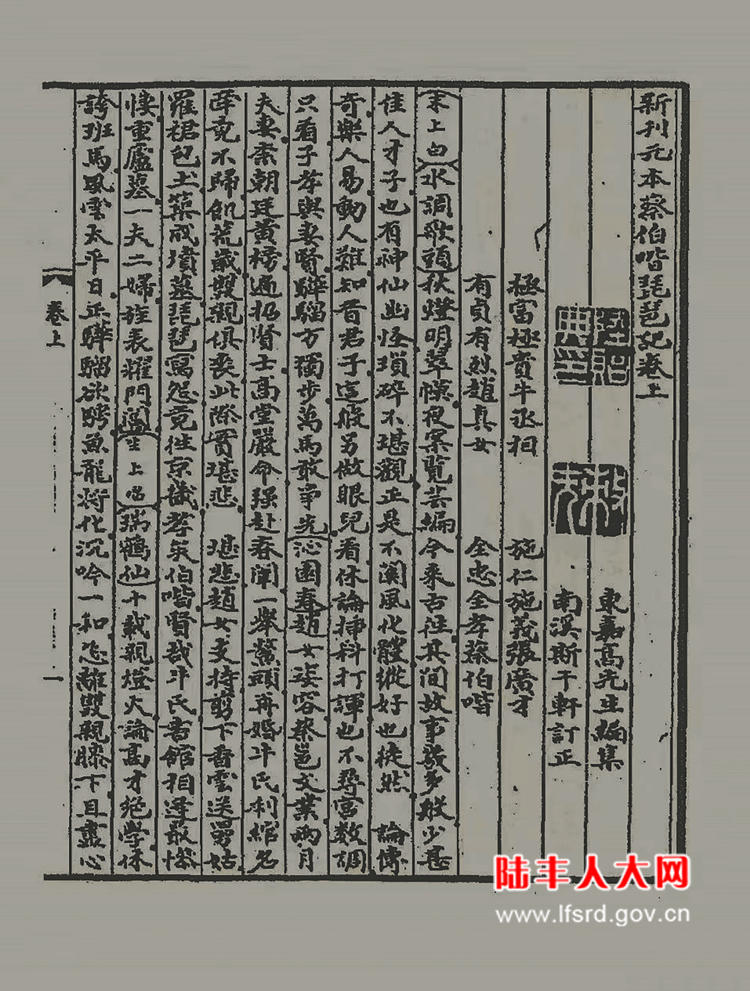 新刊元本蔡伯喈琵琶記卷上
東嘉高先生編集
南溪斯干軒訂正
極富極貴牛丞相　施仁施義張廣才
有貞有烈趙真女　全忠全孝蔡伯喈
末上白 水調歌頭 秋燈明翠幙夜案覽芸編今來古往其間故事幾多般少甚
佳人才子也有神仙幽怪瑣碎不堪觀正是不関風化體縱好也徒然　論傳
奇樂人易動人難知音君子這般另做眼兒看休論插科打諢也不尋宮數調
只看子孝與妻賢驊騮方獨步萬馬敢爭先 沁園春 趙女姿容蔡邕文業兩月
夫妻柰朝廷黃榜遍招賢士高堂嚴命强赴春闈一舉鰲頭再婚牛氏利綰名
牽竟不歸飢荒歲雙親俱喪此際實堪悲　堪悲趙女支持剪下香雲送舅姑
羅裙包土築成墳墓琵琶寫怨竟往京畿孝矣伯喈賢哉牛氏書館相逢最慘
悽重廬墓一夫二婦旌表耀門閭 生上唱 瑞鶴仙 十載親燈火論高才絕學休
誇班馬風雲太平日正驊騮欲騁魚龍將化沉吟一和怎離雙親膝下且盡心
卷上
一
陆丰人大网
www.lfsrd.gov.cn